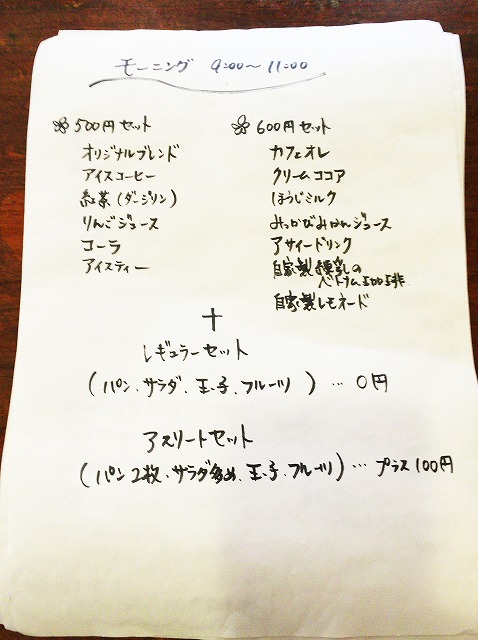 モーニング 9:00〜11:00
500円セット
オリジナルブレンド
アイスコーヒー
紅茶(ダージリン)
りんごジュース
コーラ
アイスティー
600円セット
カフェオレ
クリームココア
ほうじミルク
みっかびみかんジュース
アサイードリンク
自家製練乳の
ベトナム
自家製レモネード
+
レギュラーセット
(パン、サラダ、玉子、フルーツ)…0円
アスリートセット
(パン2枚、サラダ多め、玉子、フルーツ)…プラス100円